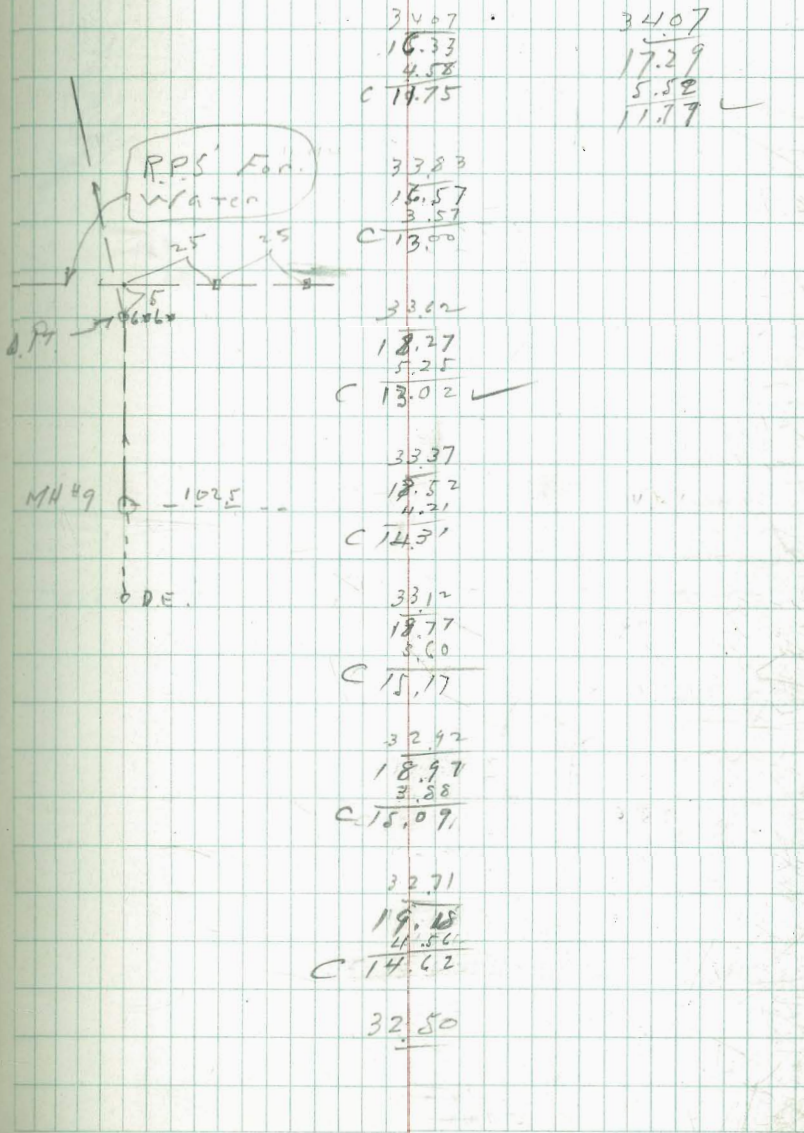 R.P.S' For
Water
25 25
5
MH #9
1025
D.E.
34.07
16.33
4.58
C 11.75
33.83
16.57
3.57
C 13.00
33.62
18.27
5.25
C 13.02 ✓
33.37
18.52
4.21
C 14.31
33.12
18.77
3.60
C 15.17
32.92
18.97
3.88
C 15.09
32.71
19.18
4.56
C 14.62
32.50
34.07
17.29
5.52
11.77 ✓